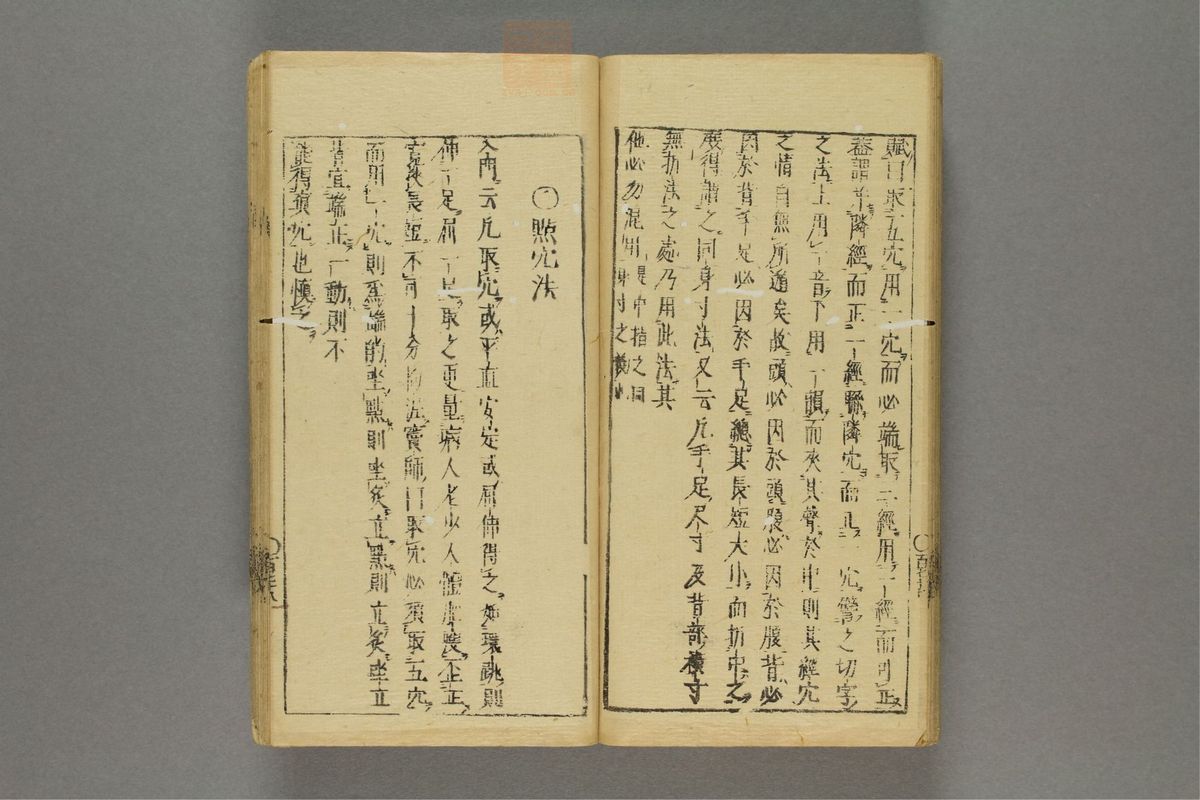 賦曰取五穴用一穴而必端取三經用一經而可正
蓋謂並隣經而正一經聯隣穴而正一穴譬之切字
之法上用一音下用一韻而夾其聲於中則其經穴
之情自無所遁矣故頭必因於頭腹必因於腹背必
因於背手足必因於手足總其長短大小而折中之
庶得謂之同身寸法又云凡手足尺寸及背部橫寸
無折法之處乃用此法其
他必勿混用 是中指之同
身寸之義也
〇點穴法
入門云凡取穴或平直安定或屈伸得之如環跳則
伸下足屈上足取之更量病人老少人體
長短不可十分拘泥竇師曰取穴必須取五穴
而用一穴則爲端的坐點則坐灸立點則立灸坐立
皆宜端正一動則不
能得眞穴也愼之